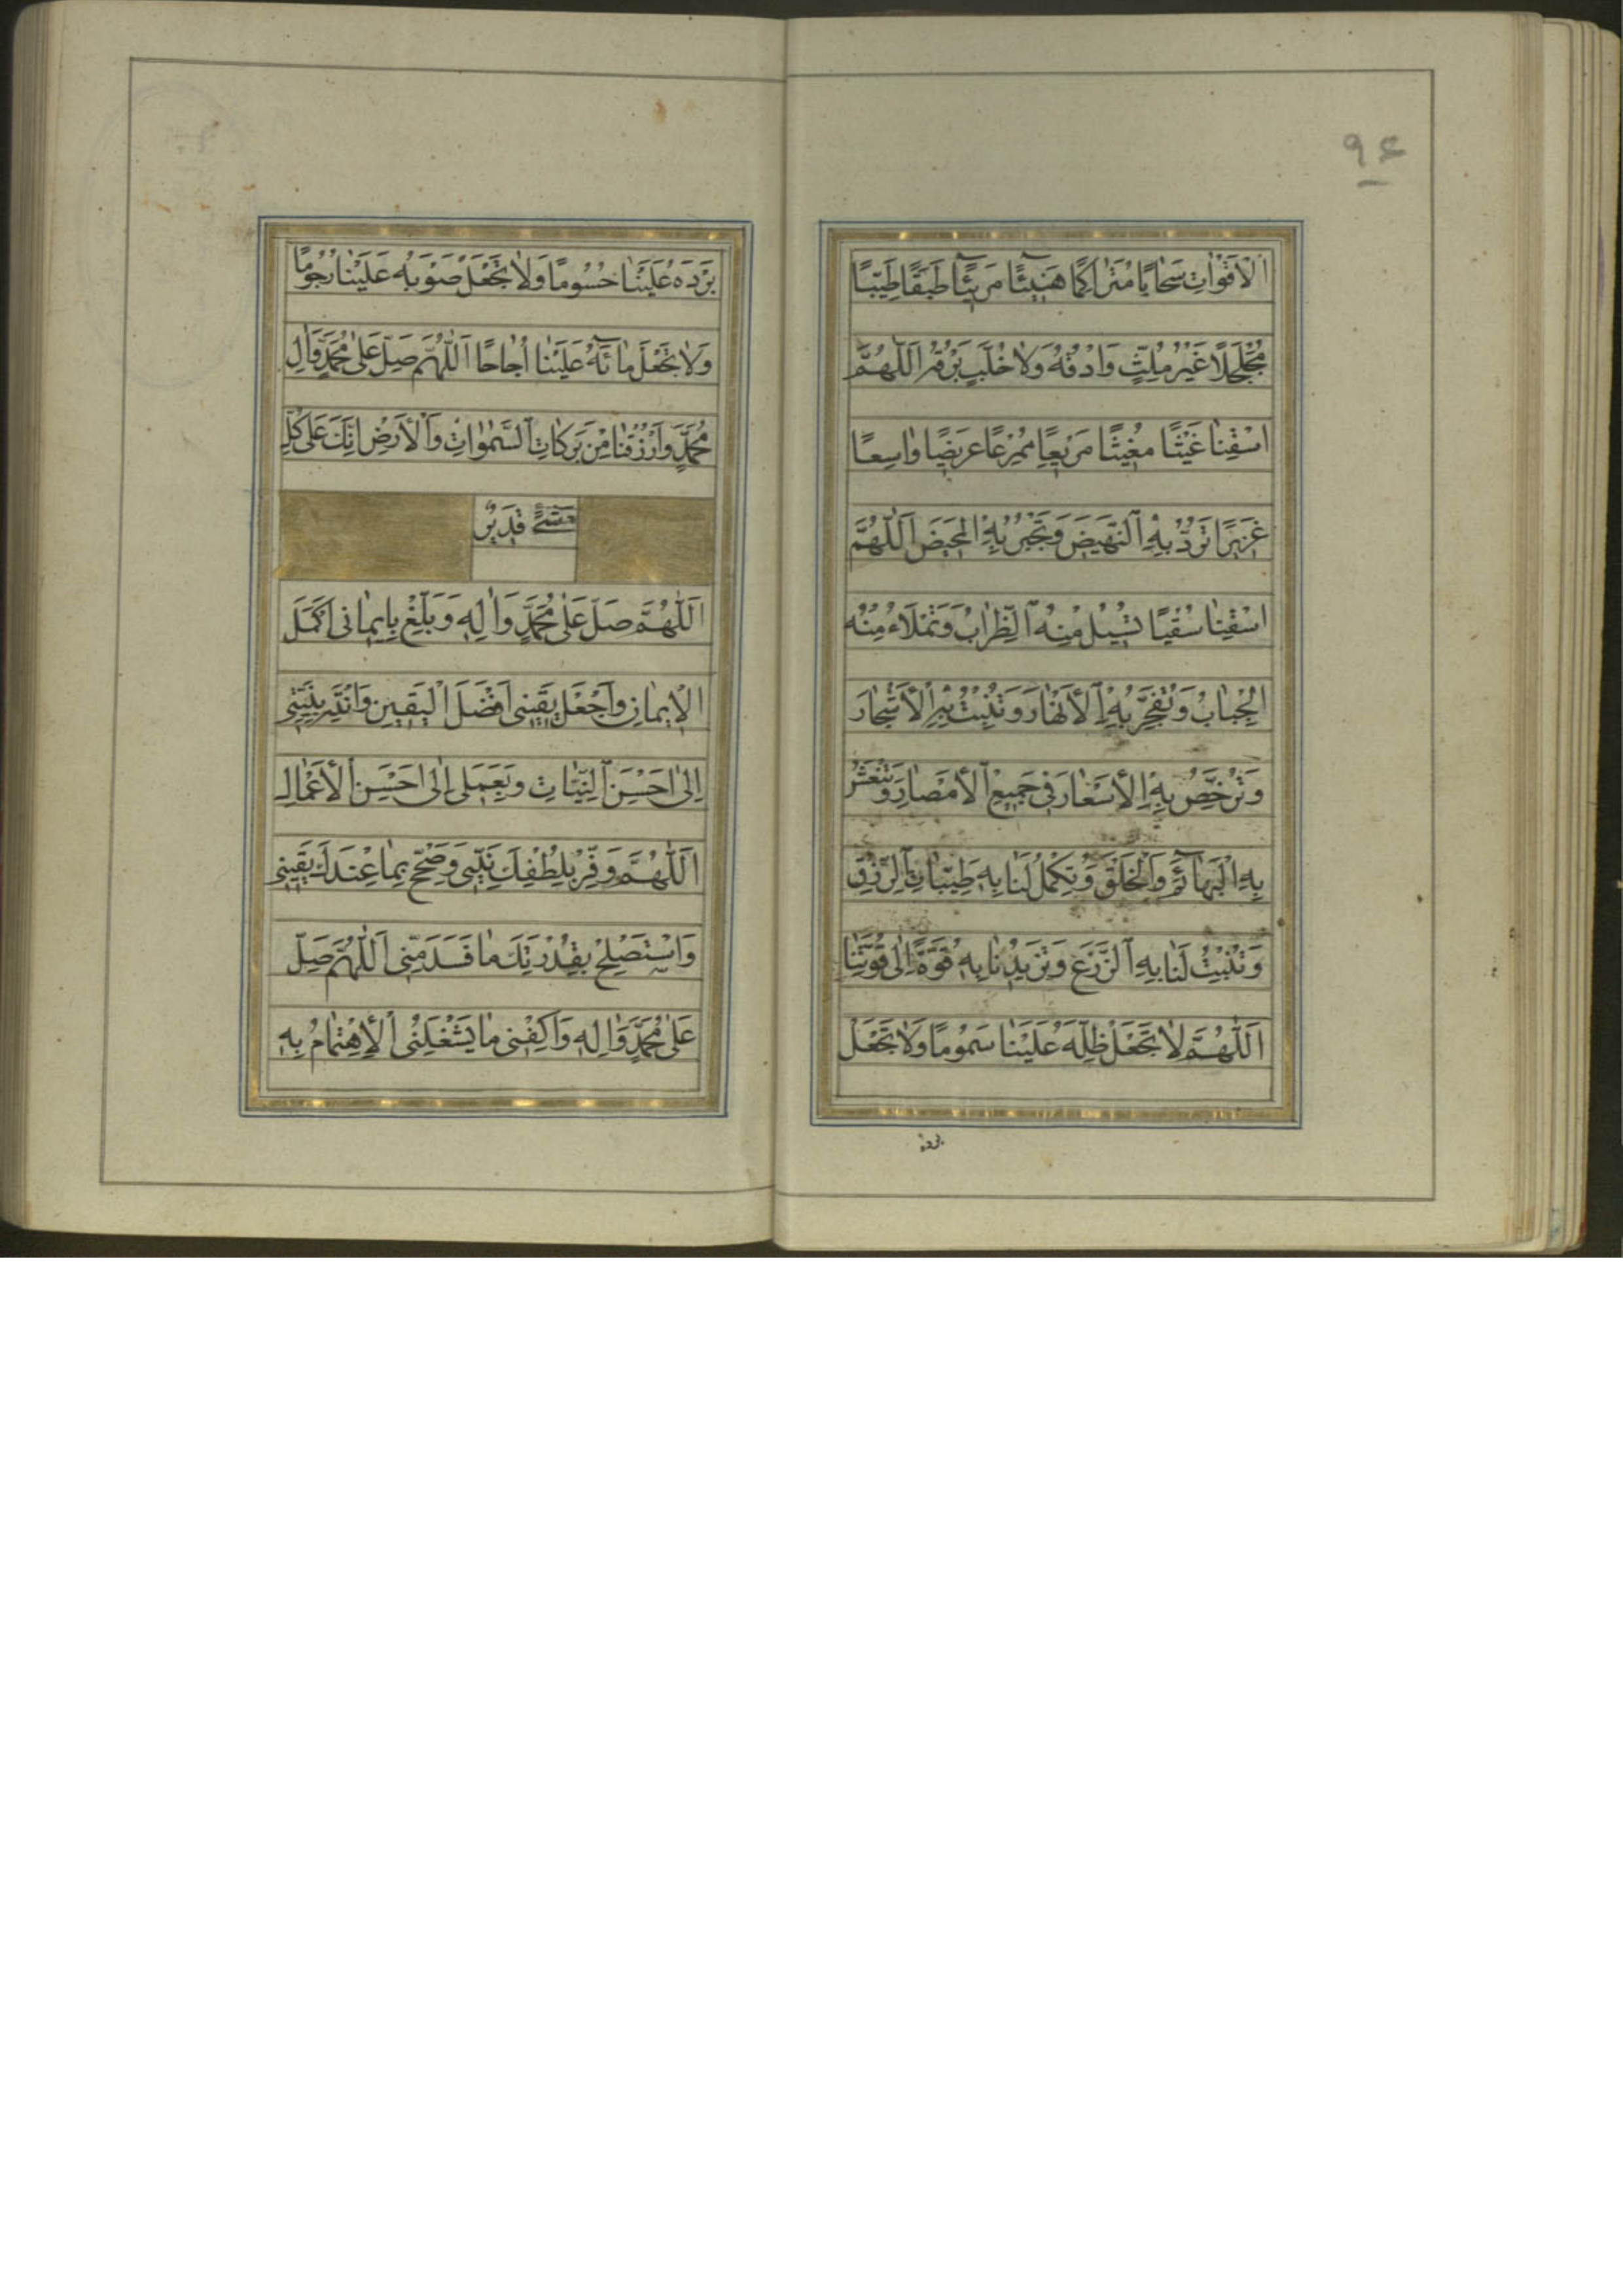 ٩٤
الْاَقْوٰاتِ سَحٰابًا مُتَرٰاكِمًا هَنٓيئًا مَرٓيئًا طَبَقًا طَيِّبًا
مُجَلْجَلًا غَيْرَ مُلِثٍّ وَادْقُهُ وَلٰا خُلَّبٍ بَرْقُهُ اَللّٰهُمَّ
اسْقِنٰا غَيْثًا مُغِيثًا مَرِيعًا مُمْرِعًا عَرِيضًا وٰاسِعًا
غَزِيرًا تَرُدُّ بِهِ النَّهِيضَ وَتَجْبُرُ بِهِ الْمَحِيضَ اَللّٰهُمَّ
اسْقِنٰا سُقْيًا تُسِيلُ مِنْهُ الظِّرٰابَ وَتَمْلَاءُ مِنْهُ
الْجِبٰابَ وَتُفَجِّرُ بِهِ الْاَنْهٰارَ وَتُنْبِتُ بِهِ الْاَشْجٰارَ
وَتُرَخِّصُ بِهِ الْاَسْعٰارَ فِي جَمِيعِ الْاَمْصٰارِ وَتَنْعَشُ
بِهِ الْبَهٰآئِمَ وَالْخَلْقَ وَتُكْمِلُ لَنٰا بِهِ طَيِّبٰاتِ الرِّزْقِ
وَتُنْبِتُ لَنٰا بِهِ الزَّرْعَ وَتَزِيدُنٰا بِهِ قُوَّةً اِلٰى قُوَّتِنٰا
اَللّٰهُمَّ لٰا تَجْعَلْ ظِلَّهُ عَلَيْنٰا سَمُومًا وَلٰا تَجْعَلْ
برده
بَرْدَهُ عَلَيْنٰا حُسُومًا وَلٰا تَجْعَلْ صَوْبَهُ عَلَيْنٰا رُجُومًا
وَلٰا تَجْعَلْ مٰائَهُ عَلَيْنٰا اُجٰاجًا اَللّٰهُمَّ صَلِّ عَلٰى مُحَمَّدٍ وَاٰلِ
مُحَمَّدٍ وَارْزُقْنٰا مِنْ بَرَكٰاتِ السَّمٰوٰاتِ وَالْاَرْضِ اِنَّكَ عَلٰى كُلِّ
شَىْءٍ قَدِيرٌ
اَللّٰهُمَّ صَلِّ عَلٰى مُحَمَّدٍ وَاٰلِهِ وَبَلِّغْ بِاِيمٰانِى اَكْمَلَ
الْاِيمٰانِ وَاجْعَلْ يَقِينِى اَفْضَلَ الْيَقِينِ وَانْتَهِ بِنِيَّتِى
اِلٰى اَحْسَنِ النِّيّٰاتِ وَبِعَمَلِى اِلٰى اَحْسَنِ الْاَعْمٰالِ
اَللّٰهُمَّ وَفِّرْ بِلُطْفِكَ نِيَّتِى وَصَحِّحْ بِمٰا عِنْدَكَ يَقِينِى
وَاسْتَصْلِحْ بِقُدْرَتِكَ مٰا فَسَدَ مِنِّى اَللّٰهُمَّ صَلِّ
عَلٰى مُحَمَّدٍ وَاٰلِهِ وَاكْفِنِى مٰا يَشْغَلُنِى الْاِهْتِمٰامُ بِهِ